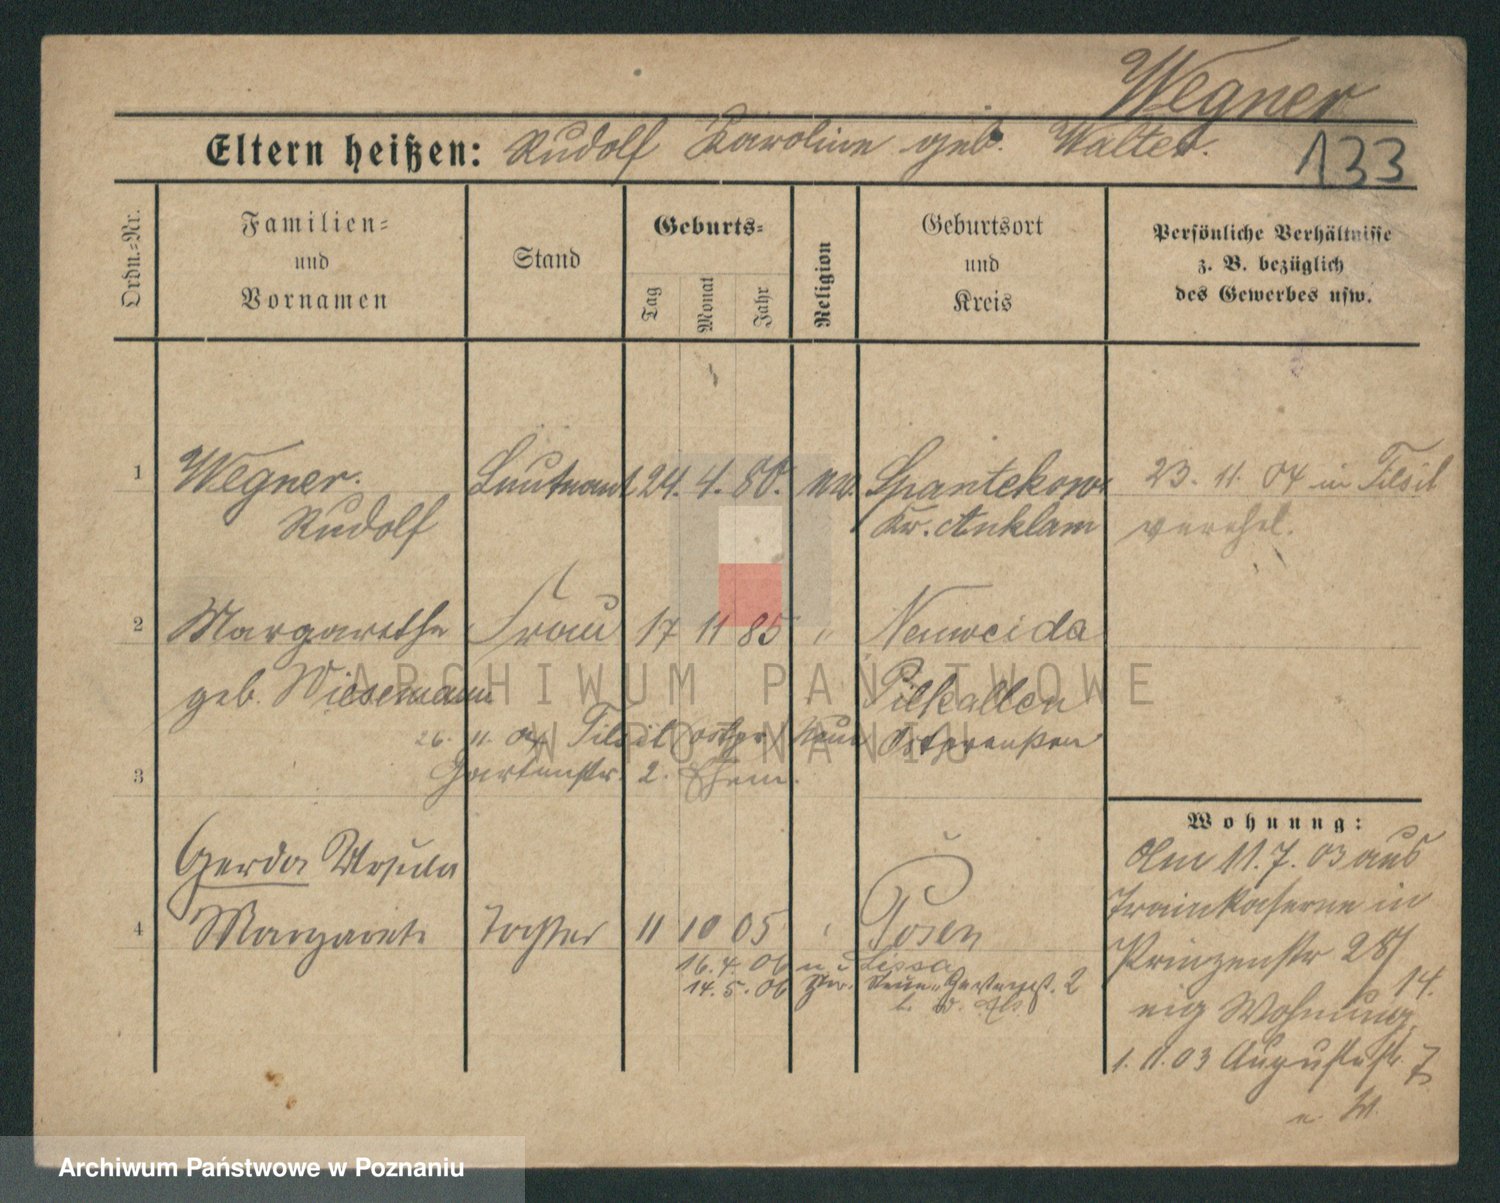 Wegner
133
Eltern heißen: Rudolf Karoline geb. Walter.
Ordn.-Nr.
Familien- und Vornamen
Stand
Geburts-
Tag
Monat
Jahr
Religion
Geburtsort und Kreis
Persönliche Verhältnisse
z. B. bezüglich
des Gewerbes usw.
1 Wegner. Leutnant 24. 4. 80. ev. Spantekow 23. 11. 04 in Tilsit
Rudolf Kr. Anklam verehel.
2 Margarethe Frau 17 11 85 " Neuweida
geb. Wiesemann Pillkallen
26. 11. 04 Tilsit Ostpr. Ostpreußen
3 Gartenstr. 2.
Wohnung:
Gerda Ursula
Am 11.7.03 aus
Trainkaserne in
4 Margarete Tochter 11 10 05 " Posen
Prinzenstr 28/
16. 4. 06 n. Lissa
14.
14. 5. 06 Gartenst. 2
eig Wohnung
1. 11. 03 Augustastr. 7
ARCHIWUM PAŃSTWOWE
W POZNANIU
Archiwum Państwowe w Poznaniu